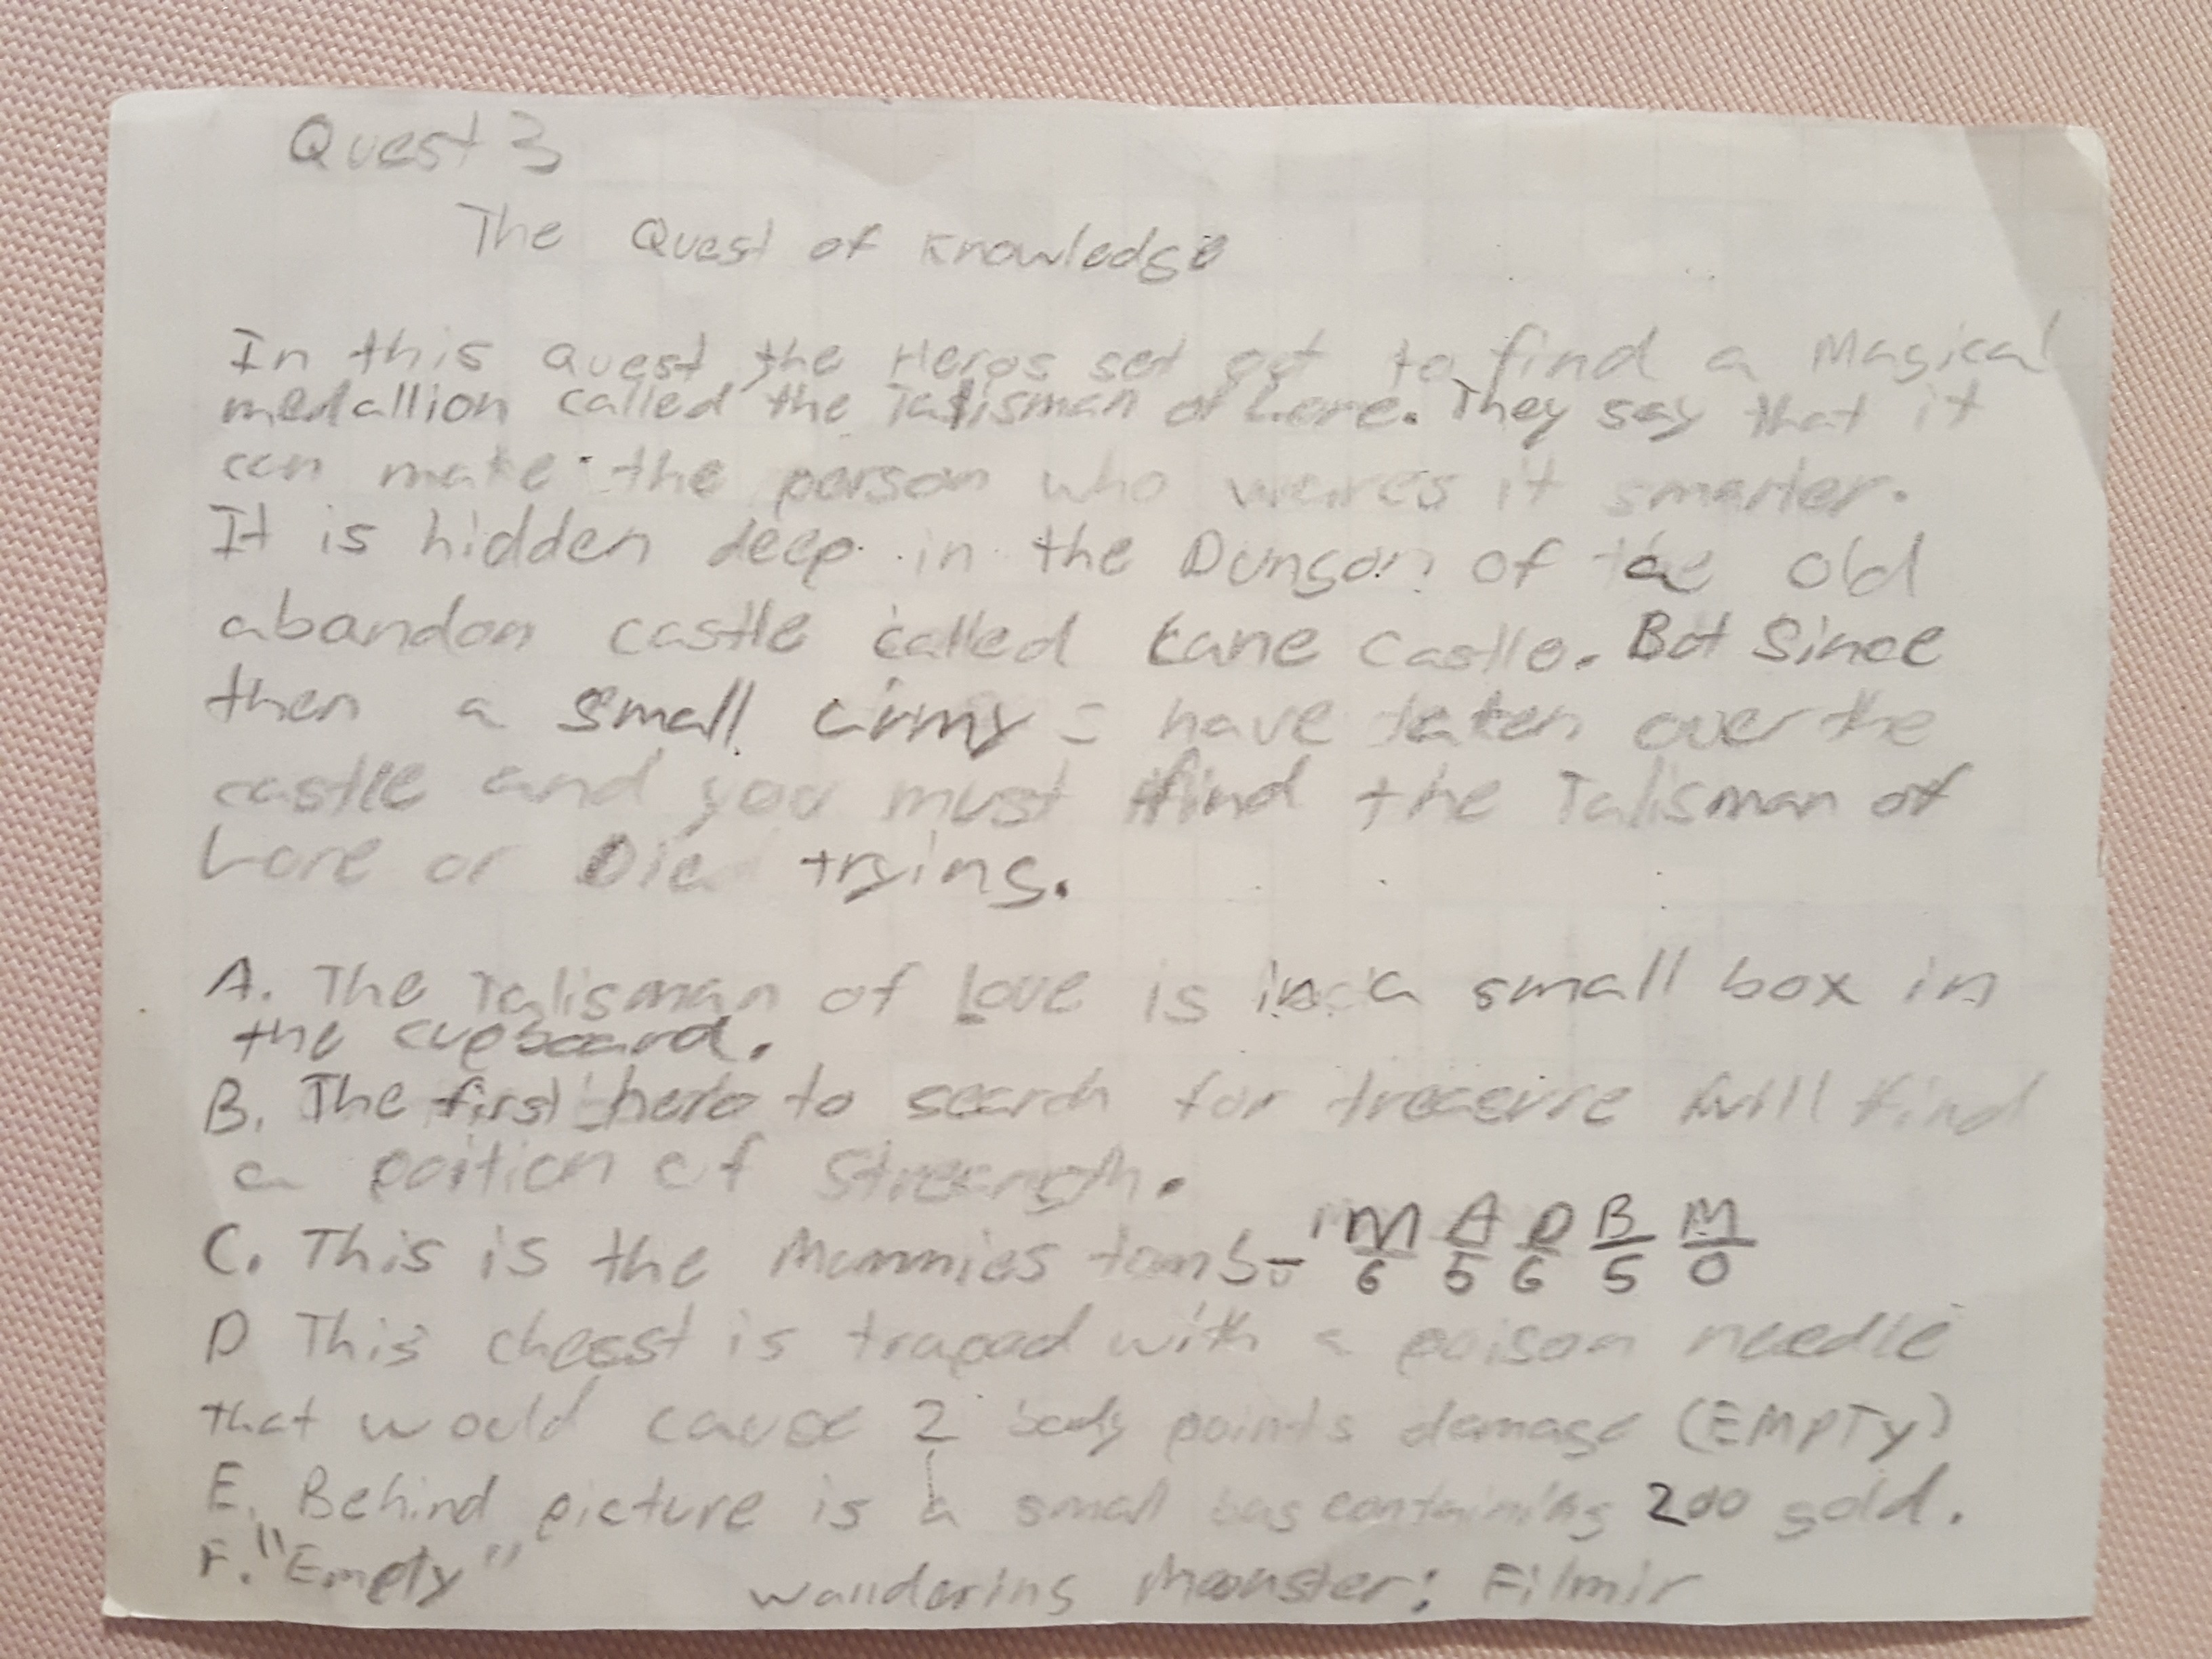 Quest 3
The Quest of Knowledge
In this Quest the Heros set out to find a Magical
medallion called the Talisman of Lore. They say that it
can make the person who weares it smarter.
It is hidden deep in the Dungon of a old
abandon castle called Kane Castle. But Since
then a small army have taken over the
castle and you must find the Talisman of
Lore or Die trying.
A. The Talisman of Love is in a small box in
the cupboard.
B. The first hero to search for treaserre will find
a poition of Strength.
C. This is the Mummies tomb- M/6 A/5 D/6 B/5 M/0
D This chesst is traped with a poison needle
that would cause 2 body points damage (EMPTy)
E. Behind picture is a small bag containing 200 gold.
F. "Empty"
Wandering Monster: Filmir